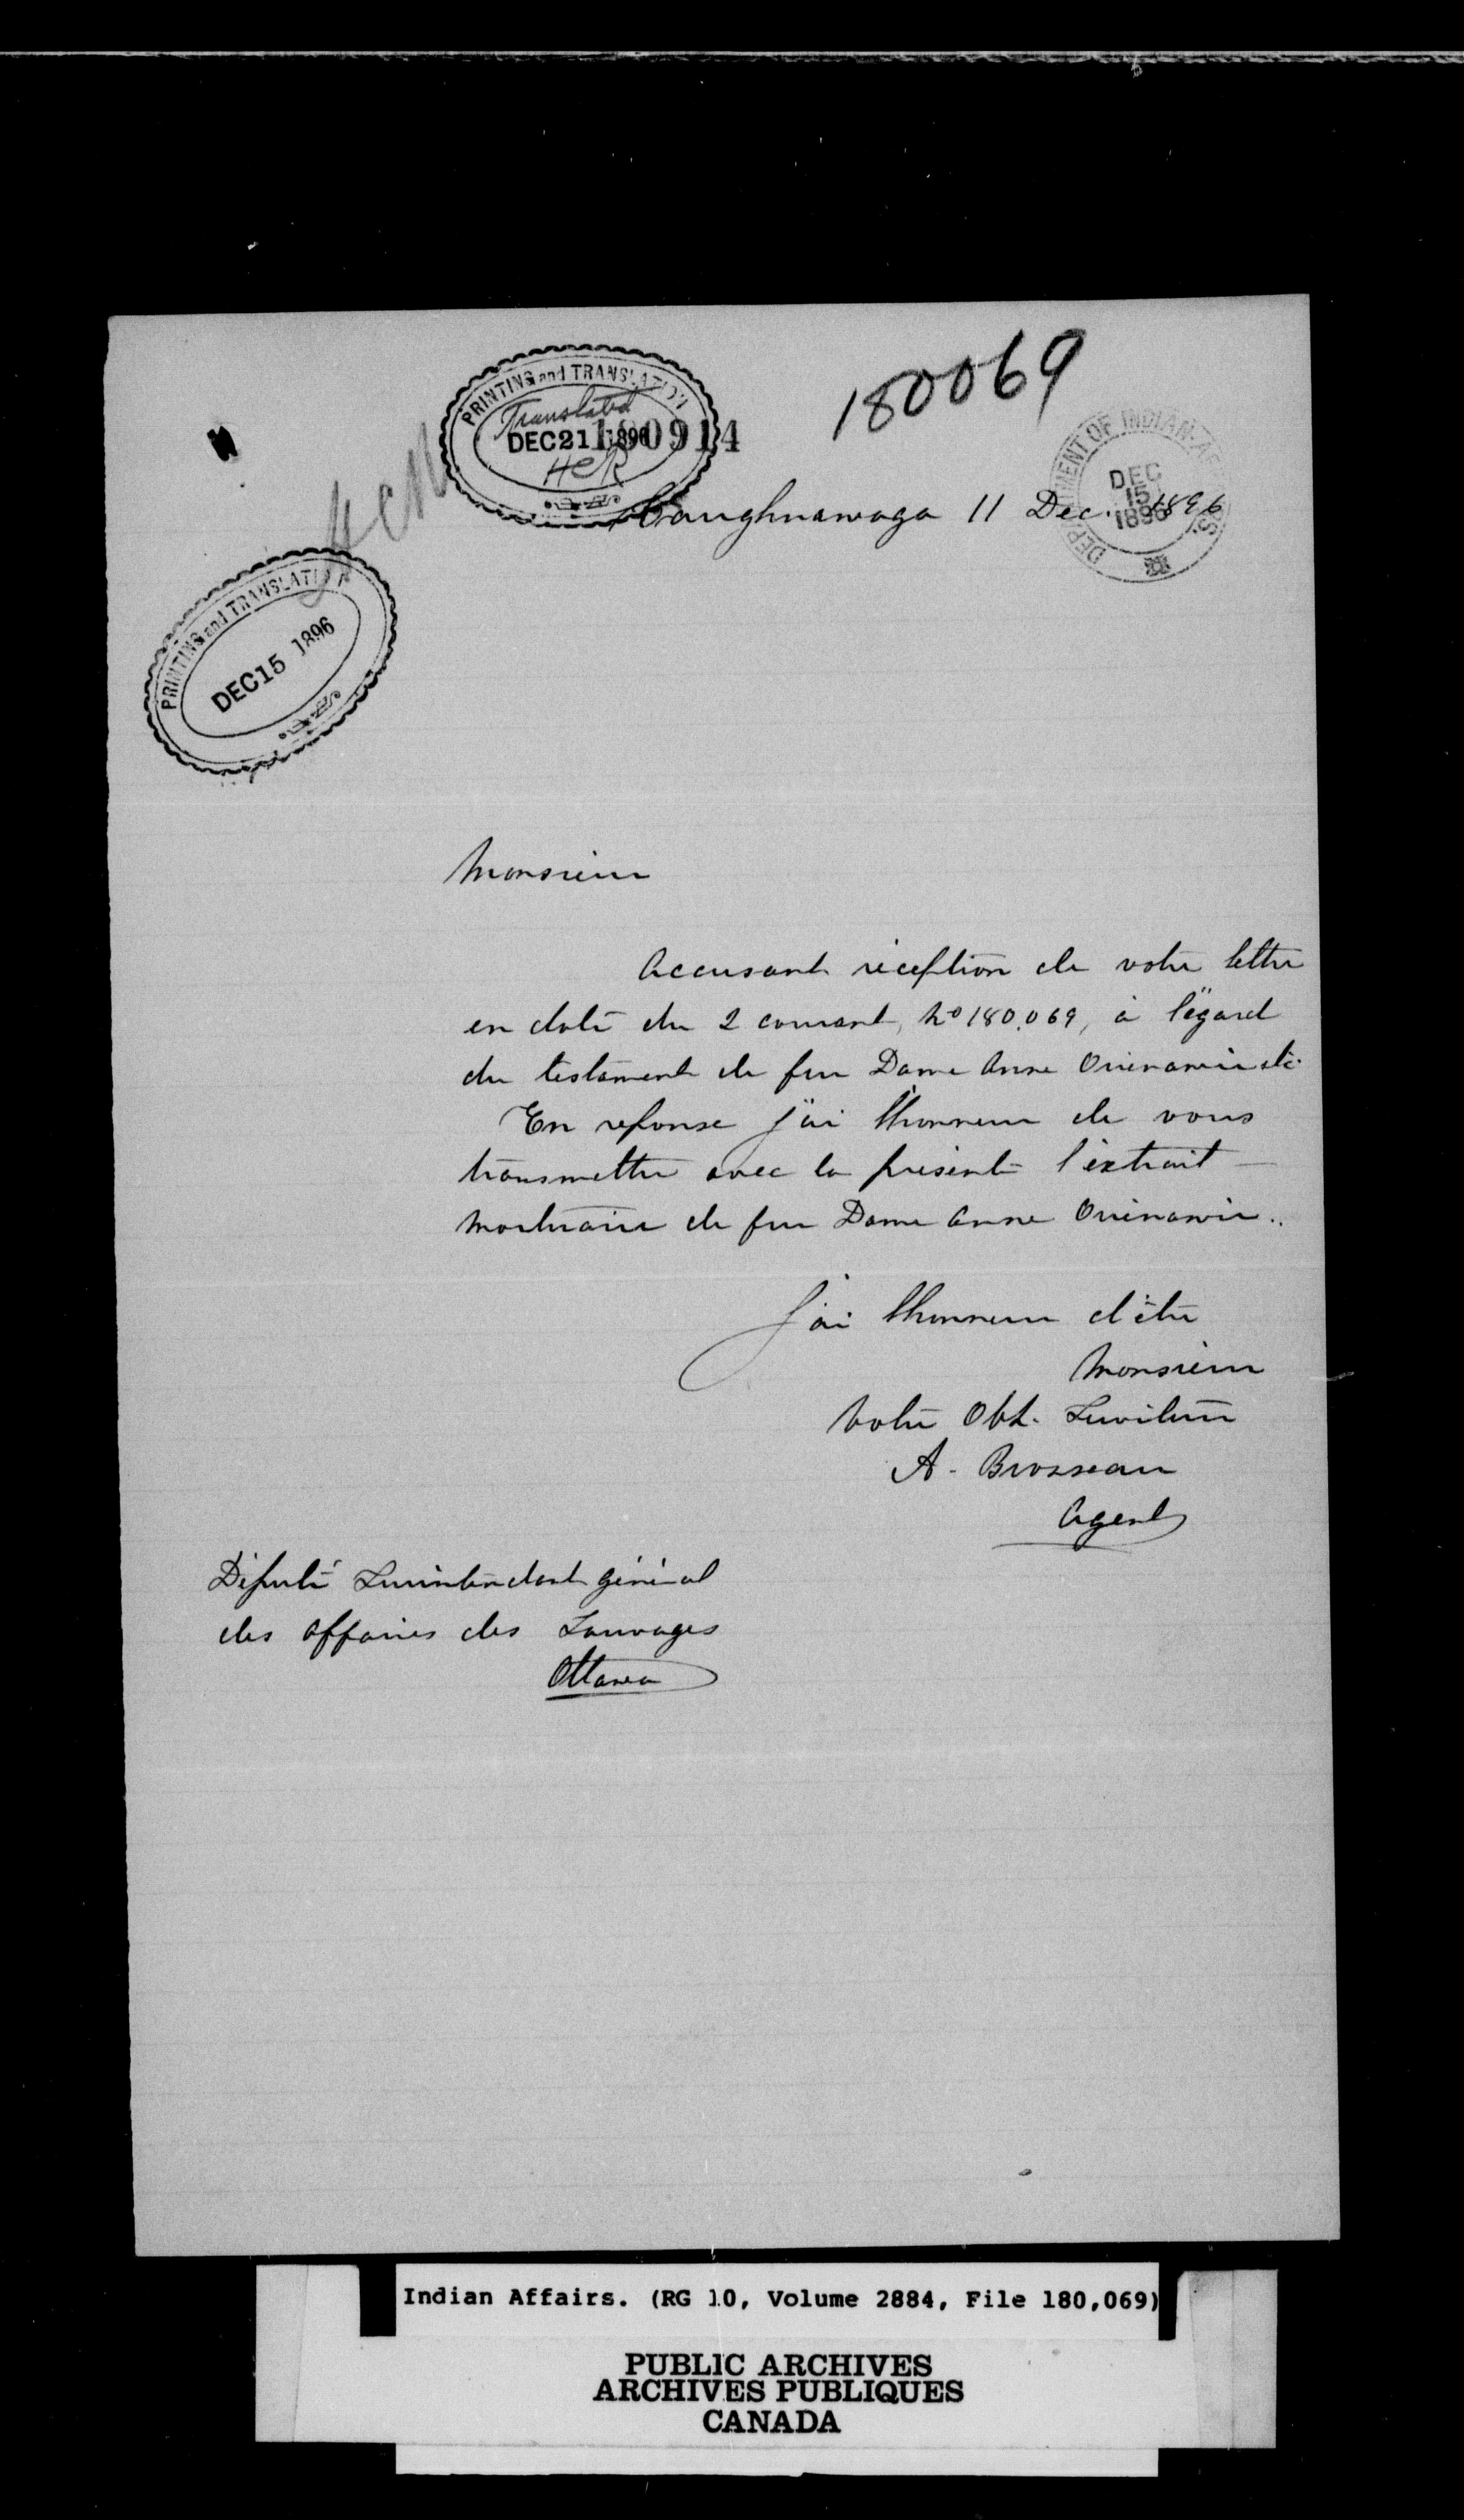 180069
PRINTING and TRANSLATION
Translated
DEC 21 1896
180914
HCR
DEPARTMENT OF INDIAN AFFAIRS.
DEC
15
1896
Caughnawaga 11 Dec. 1896
PRINTING and TRANSLATION
DEC 15 1896
Monsieur
Accusant réception de votre lettre
en date du 2 courant, No 180.069, à l'égard
du testament de feu Dame Anne
En reponse j'ai l'honneur de vous
transmettre avec la présente l'extrait
mortuaire de feu Dame Anne
J'ai l'honneur d'être
Monsieur
Votre Obt. Serviteur
A. Brosseau
Agent
Député Surintendant général
des affaires des Sauvages
Ottawa
Indian Affairs. (RG 10, Volume 2884, File 180,069)
PUBLIC ARCHIVES
ARCHIVES PUBLIQUES
CANADA